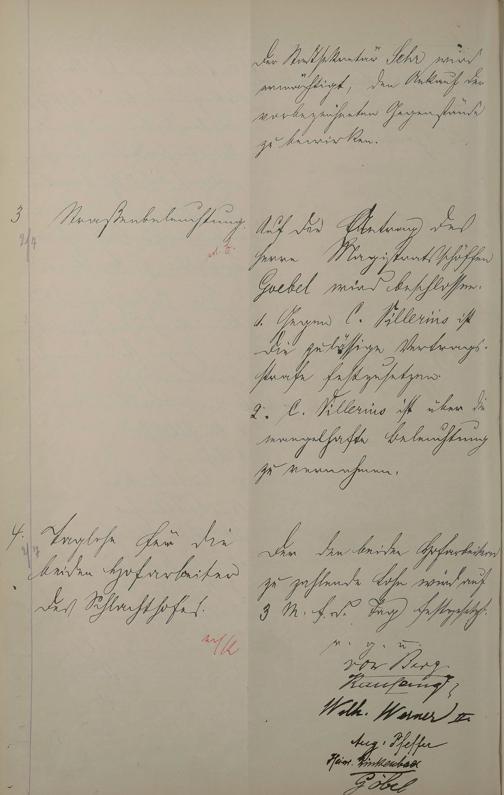 Der Stadtsekretär Sehr wird
ermächtigt, den Ankauf der
vorbezeichneten Gegenstände
zu bewirken.
3
Straßenbeleuchtung.
Auf den Antrag des
Herrn Magistratsschöffen
Goebel wird beschlossen:
1. Gegen C. Sillerius ist
die zulässige Vertrags-
strafe festzusetzen.
2. C. Sillerius ist über die
mangelhafte Beleuchtung
zu vernehmen.
4.
Taglohn für die
beiden Hofarbeiter
des Schlachthofes.
Der den beiden Hofarbeitern
zu zahlende Lohn wird auf
3 M. f. d. Tag festgesetzt.
v. g. u.
von Berg.
Wilh. Werner II.
Aug. Pfeffer
Heinr. Winkenbach
Göbel